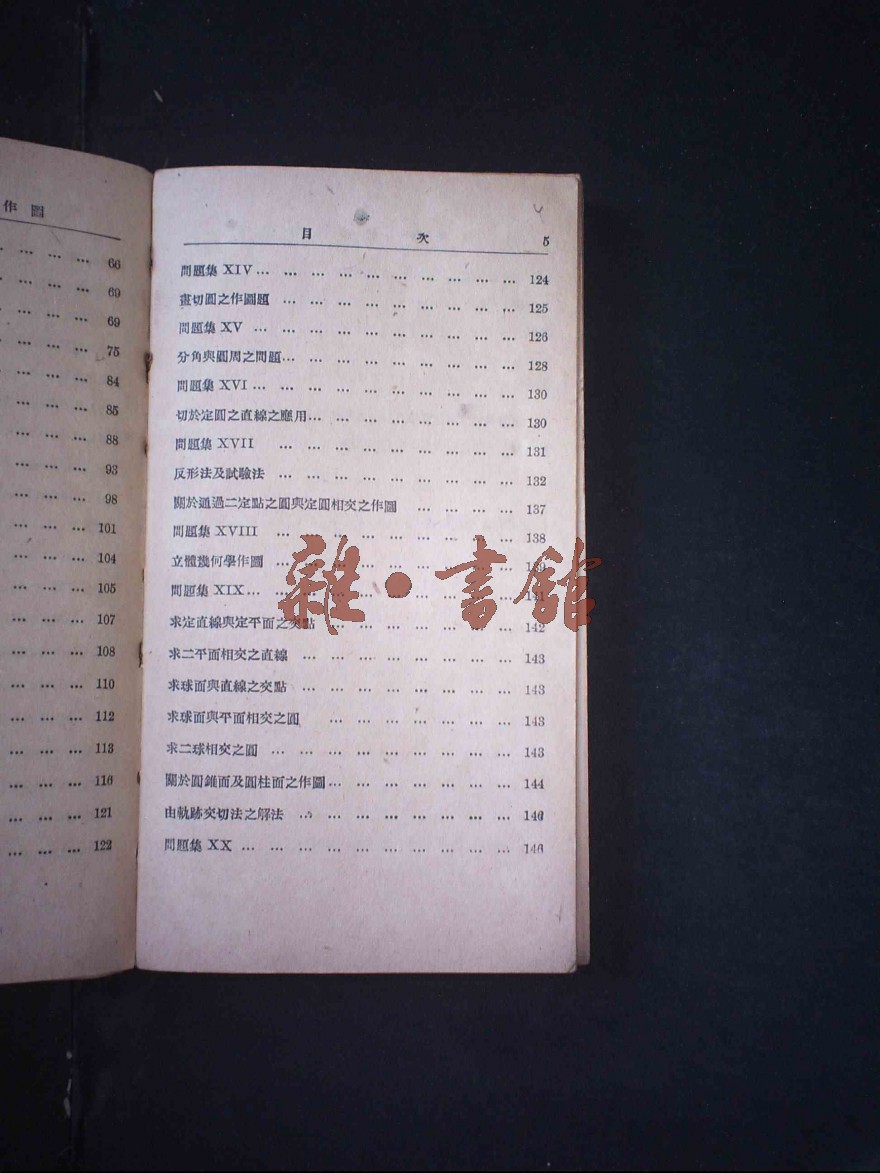 作 圖
66
69
69
75
84
85
88
93
98
101
104
105
107
108
110
112
113
116
121
122
目 次 5
問題集 XIV … … … … … … … … … … 124
畫切圓之作圖題 … … … … … … … … … 125
問題集 XV … … … … … … … … … … 126
分角與圓周之問題… … … … … … … … … 128
問題集 XVI … … … … … … … … … … 130
切於定圓之直線之應用… … … … … … … … 130
問題集 XVII … … … … … … … … … 131
反形法及試驗法 … … … … … … … … … 132
關於通過二定點之圓與定圓相交之作圖 … … … … 137
問題集 XVIII … … … … … … … … … 138
立體幾何學作圖 … … … … … … … … … 139
問題集 XIX… … … … … … … … … … 141
求定直線與定平面之交點 … … … … … … … 142
求二平面相交之直線 … … … … … … … … 143
求球面與直線之交點 … … … … … … … … 143
求球面與平面相交之圓 … … … … … … … 143
求二球相交之圓 … … … … … … … … … 143
關於圓錐面及圓柱面之作圖… … … … … … … 144
由軌跡交切法之解法 … … … … … … … … 146
問題集 XX … … … … … … … … … … 146
雜·書館